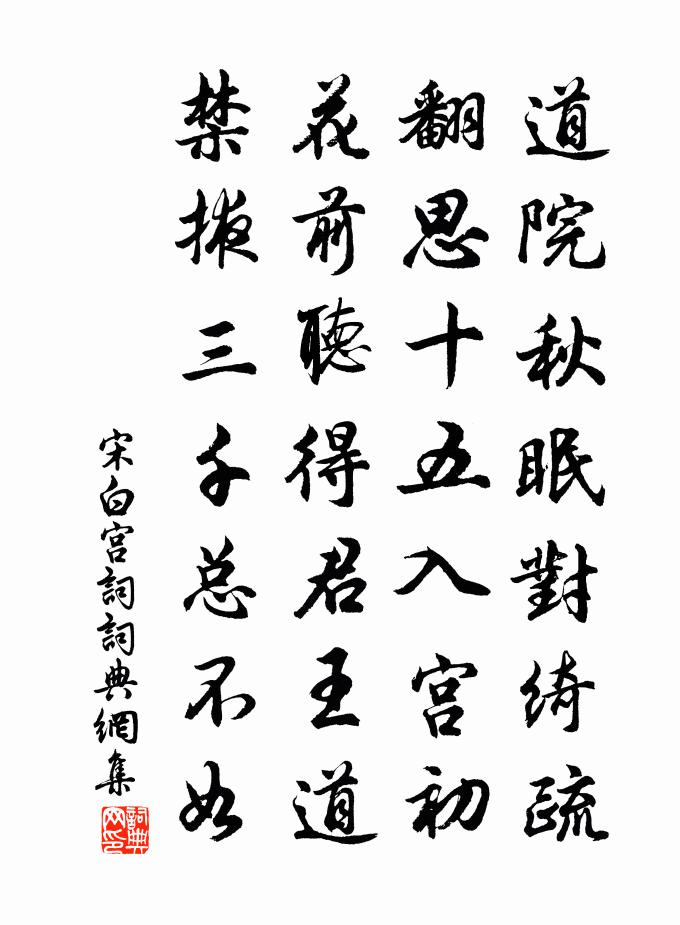 道院秋眠對綺疏
翻思十五入宮初
花前聽得君王道
禁掖三千总不如
宋白宮詞詞典網集
詞典网印